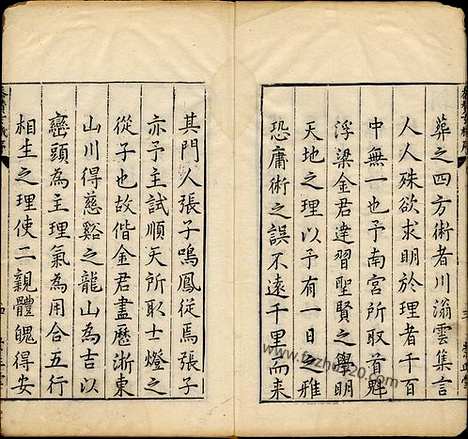 葬之四方術者川滃雲集言
人人殊欲求明於理者千百
中無一也予南宮所取首魁
浮梁金君達習聖賢之學明
天地之理以予有一日之雅
恐庸術之誤不遠千里而来
其門人張子鳴鳳従焉張子
亦予主試順天所取士燈之
從子也故偕金君盡歷浙東
山川得慈谿之龍山為吉以
巒頭為主理氣為用合五行
相生之理使二親體魄得安